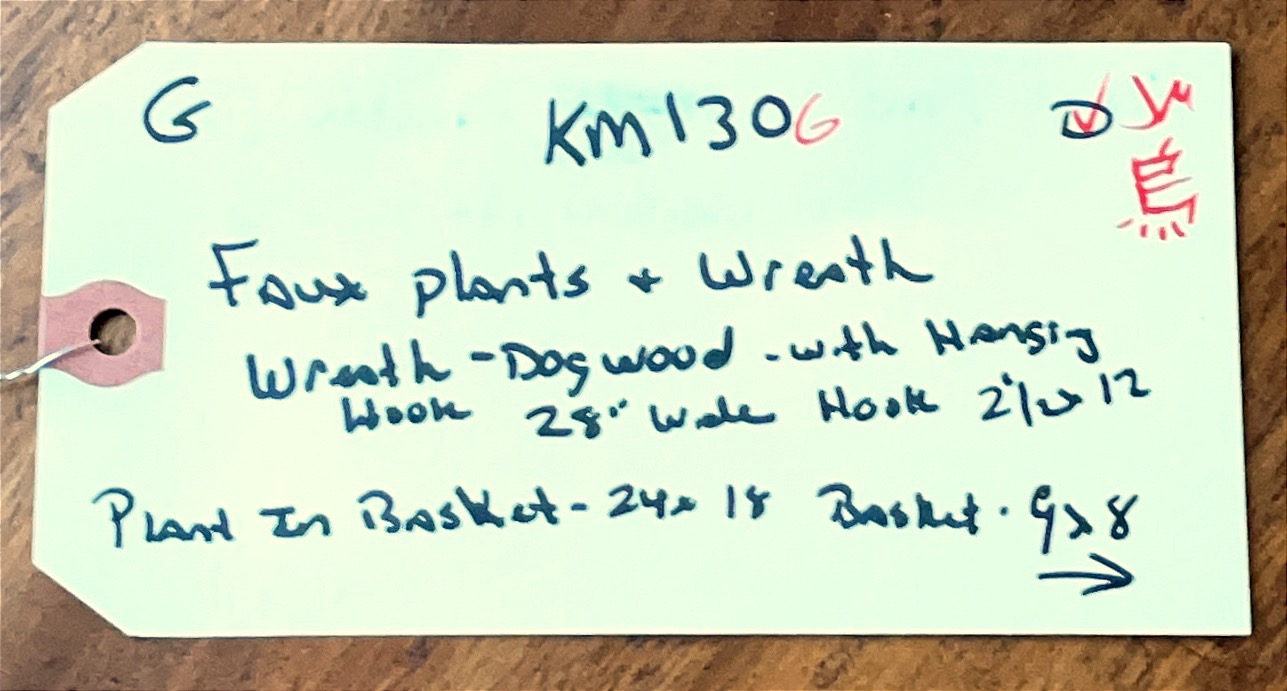 G KM130G D
Faux plants + Wreath
Wreath - Dogwood - with Hanging
Hook 28" Wide Hook 2½ x 12
Plant In Basket - 24 x 18 Basket - 9 x 8